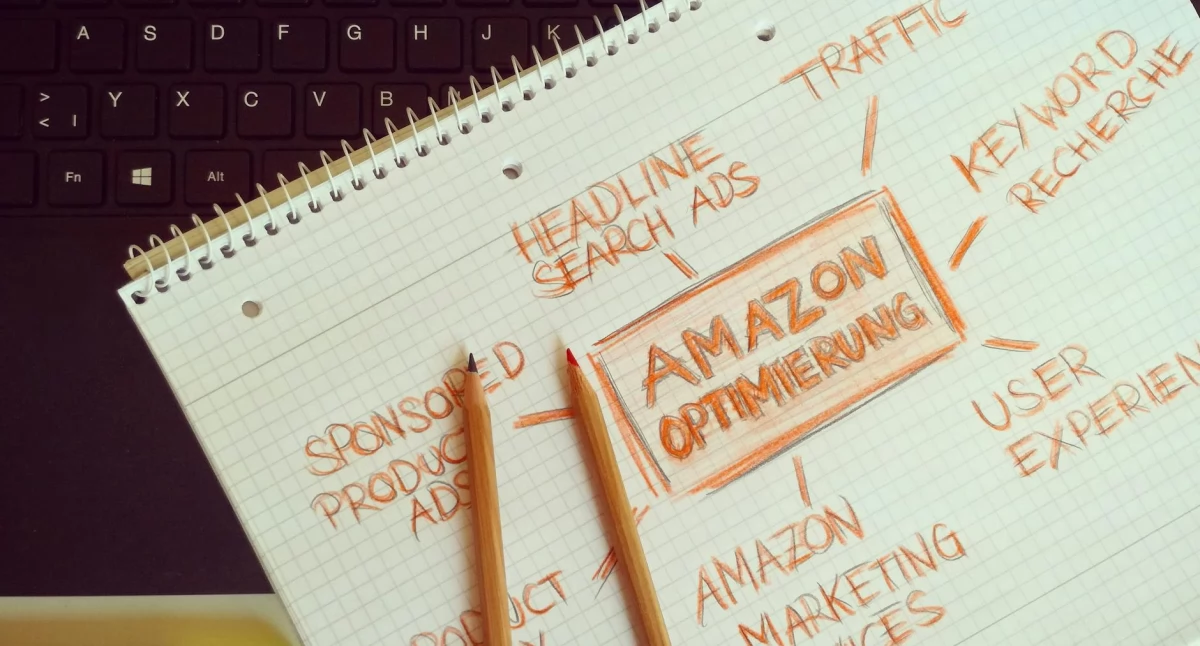 A S D F G H J K
>
< | Y X C V B
Fn Alt
TRAFFIC
KEYWORD
RECHERCHE
HEADLINE
SEARCH ADS
AMAZON
OPTIMIERUNG
USER
EXPERIEN
SPONSORED
PRODUCT
ADS
AMAZON
MARKETING
PRODUCT